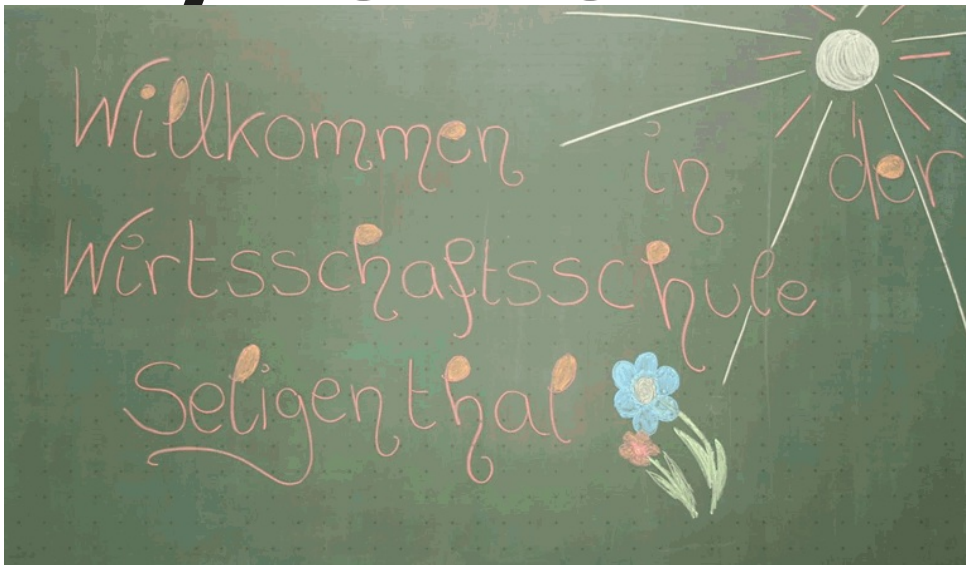 Willkommen in der
Wirtsschaftsschule
Seligenthal